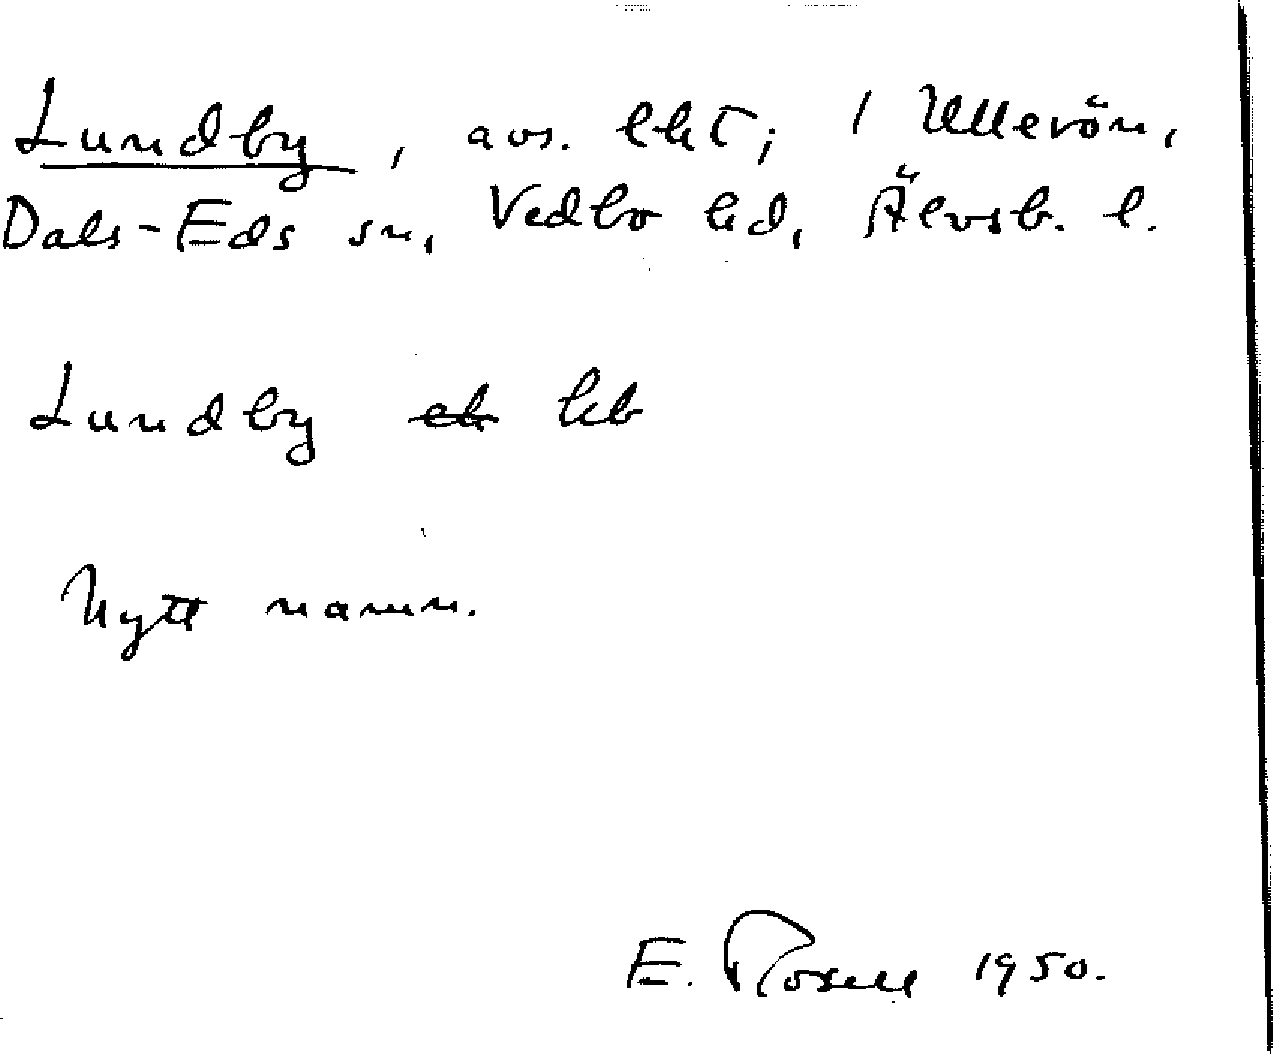 Lundby, avs. lht; 1 Ulleröm,
Dals-Eds sn, Vedbo hd, Älvsb. l.
Lundby eb hb
Nytt namn.
E. Rosell 1950.